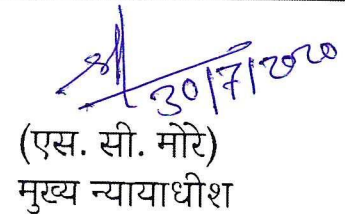 30/7/2020
(एस. सी. मोरे)
मुख्य न्यायाधीश